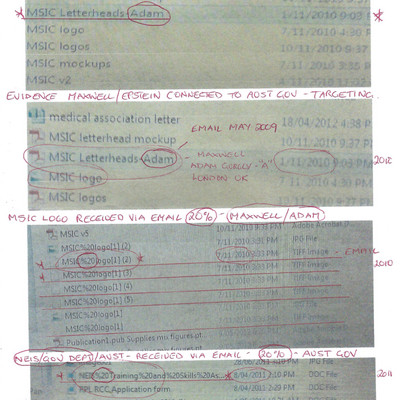 MSIC Letterheads Adam 1/11/2010 9:03 P
MSIC logo 7/11/2010 4:30 P
MSIC logos 10/11/2010 9:37
MSIC mockups 7/11/2010 3:35 P
MSIC v2
EVIDENCE MAXWELL/EPSTEIN CONNECTED TO AUST GOV - TARGETING.
medical association letter 18/04/2012 4:38 P
EMAIL MAY 2009
MSIC letterhead mockup 10/11/2010 9:37 P
MSIC Letterheads Adam - MAXWELL 1/11/2010 9:03 PM 2012
ADAM "A"
MSIC logo LONDON UK 7/11/2010 4:30 PM
MSIC logos
MSIC LOGO RECEIVED VIA EMAIL 20% - (MAXWELL/ADAM)
MSIC v5 10/11/2010 9:33 PM Adobe Acrobat
MSIC%20logo[1] (2) 7/11/2010 3:31 PM JPG File
MSIC%20logo[1] (2) 7/11/2010 3:31 PM TIFF Image - EMAIL
MSIC%20logo[1] (3) 7/11/2010 3:31 PM TIFF Image 2010
MSIC%20logo[1] (4) 7/11/2010 3:31 PM TIFF Image
MSIC%20logo[1] (5) 7/11/2010 3:31 PM TIFF Image
MSIC%20logo[1] 7/11/2010 3:31 PM TIFF Image
MSIC%20logo[1]
Publication1.pub Supplies mix figures.pt...
NEIS/GOV DEPT/AUST - RECEIVED VIA EMAIL - 20% - AUST GOV
NEIS%20Training%20and%20Skills%20As... 8/04/2011 2:10 PM DOC File 2011
RPL RCC Application form 8/04/2011 2:29 PM DOC File